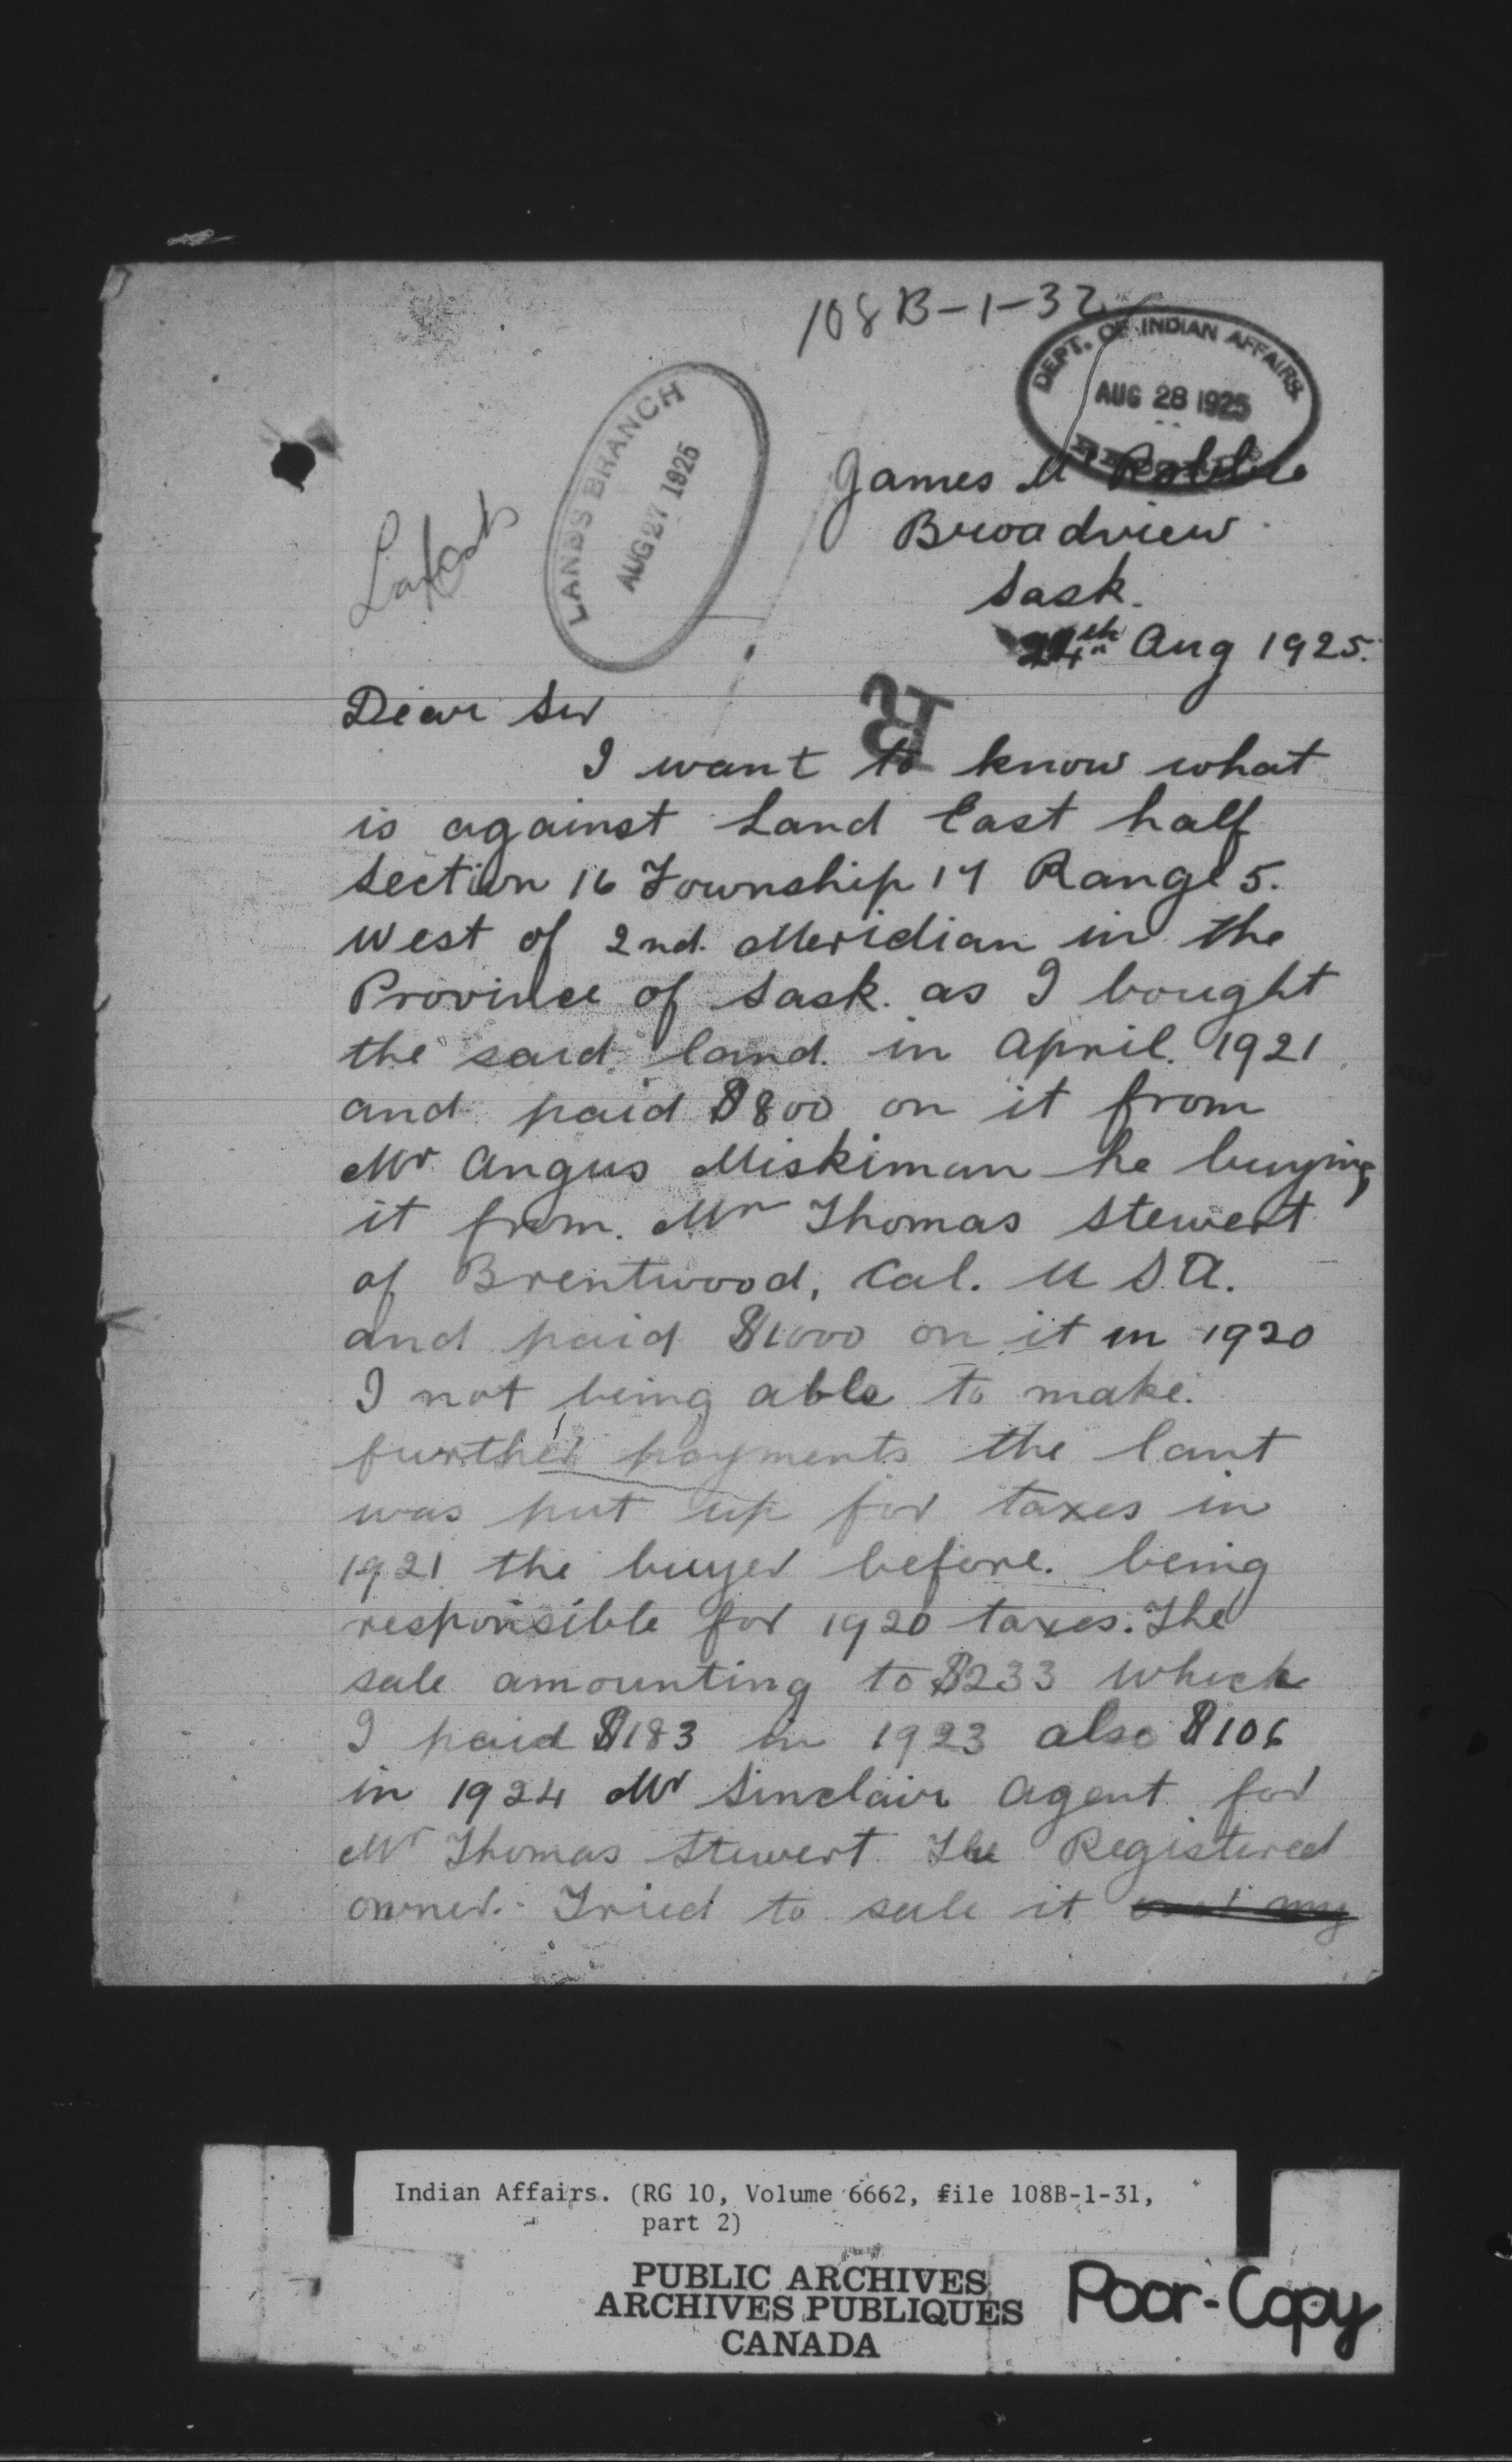 108B-1-32
DEPT. OF INDIAN AFFAIRS
AUG 28 1925
LANDS BRANCH
AUG 27 1925
James M
Broadview
Sask.
24th Aug 1925.
Dear Sir
I want to know what
is against Land East half
Section 16 Township 17 Range 5.
West of 2nd. Meridian in the
Province of Sask. as I bought
the said land. in April. 1921
and paid $800 on it from
Mr Angus Miskiman he buying
it from. Mr Thomas Stewert
of Brentwood, Cal. U S.A.
and paid $1000 on it in 1920
I not being able to make.
further payments the lant
was put up for taxes in
1921 the buyer before. being
responsible for 1920 taxes. The
sale amounting to $233 which
I paid $183 in 1923 also $106
in 1924 Mr Sinclair Agent for
Mr Thomas Stewert The Registered
owner. Tried to sale it
Indian Affairs. (RG 10, Volume 6662, file 108B-1-31,
part 2)
PUBLIC ARCHIVES
ARCHIVES PUBLIQUES
CANADA
Poor-Copy